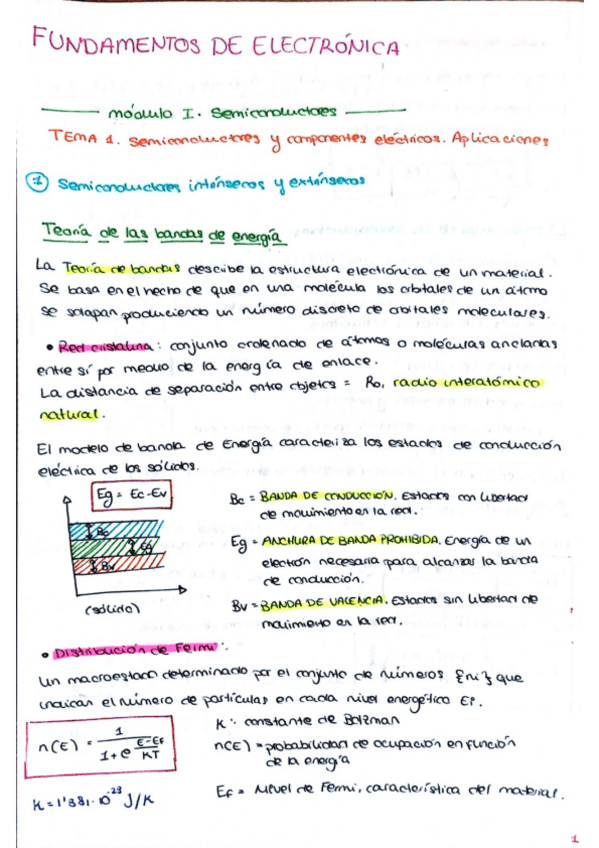 FUNDAMENTOS DE ELECTRÓNICA
módulo I. Semiconductores
TEMA 1. Semiconductores y componentes eléctricos. Aplicaciones
1 Semiconductores intrínsecos y extrínsecos
Teoría de las bandas de energía
La Teoría de bandas describe la estructura electrónica de un material.
Se basa en el hecho de que en una molécula los orbitales de un átomo
se solapan produciendo un número discreto de orbitales moleculares.
• Red cristalina: conjunto ordenado de átomos o moléculas ancladas
entre sí por medio de la energía de enlace.
La distancia de separación entre objetos = Ro, radio interatómico
natural.
El modelo de banda de Energía caracteriza los estados de conducción
eléctrica de los sólidos.
Eg = Ec-Ev
Bc
Eg
Bv
(sólido)
Bc = BANDA DE CONDUCCIÓN. Estados con libertad
de movimiento en la red.
Eg = ANCHURA DE BANDA PROHIBIDA. Energía de un
electrón necesaria para alcanzar la banda
de conducción.
Bv = BANDA DE VALENCIA. Estados sin libertad de
movimiento en la red.
• Distribución de Fermi:
Un macroestado determinado por el conjunto de números {ni} que
indican el número de partículas en cada nivel energético Ei.
n(E) = 1 / 1 + e^(E-Ef / KT)
K: constante de Bolzman
n(E) = probabilidad de ocupación en función
de la energía
K = 1'381·10^-23 J/K
Ef = Nivel de Fermi, característica del material.
1